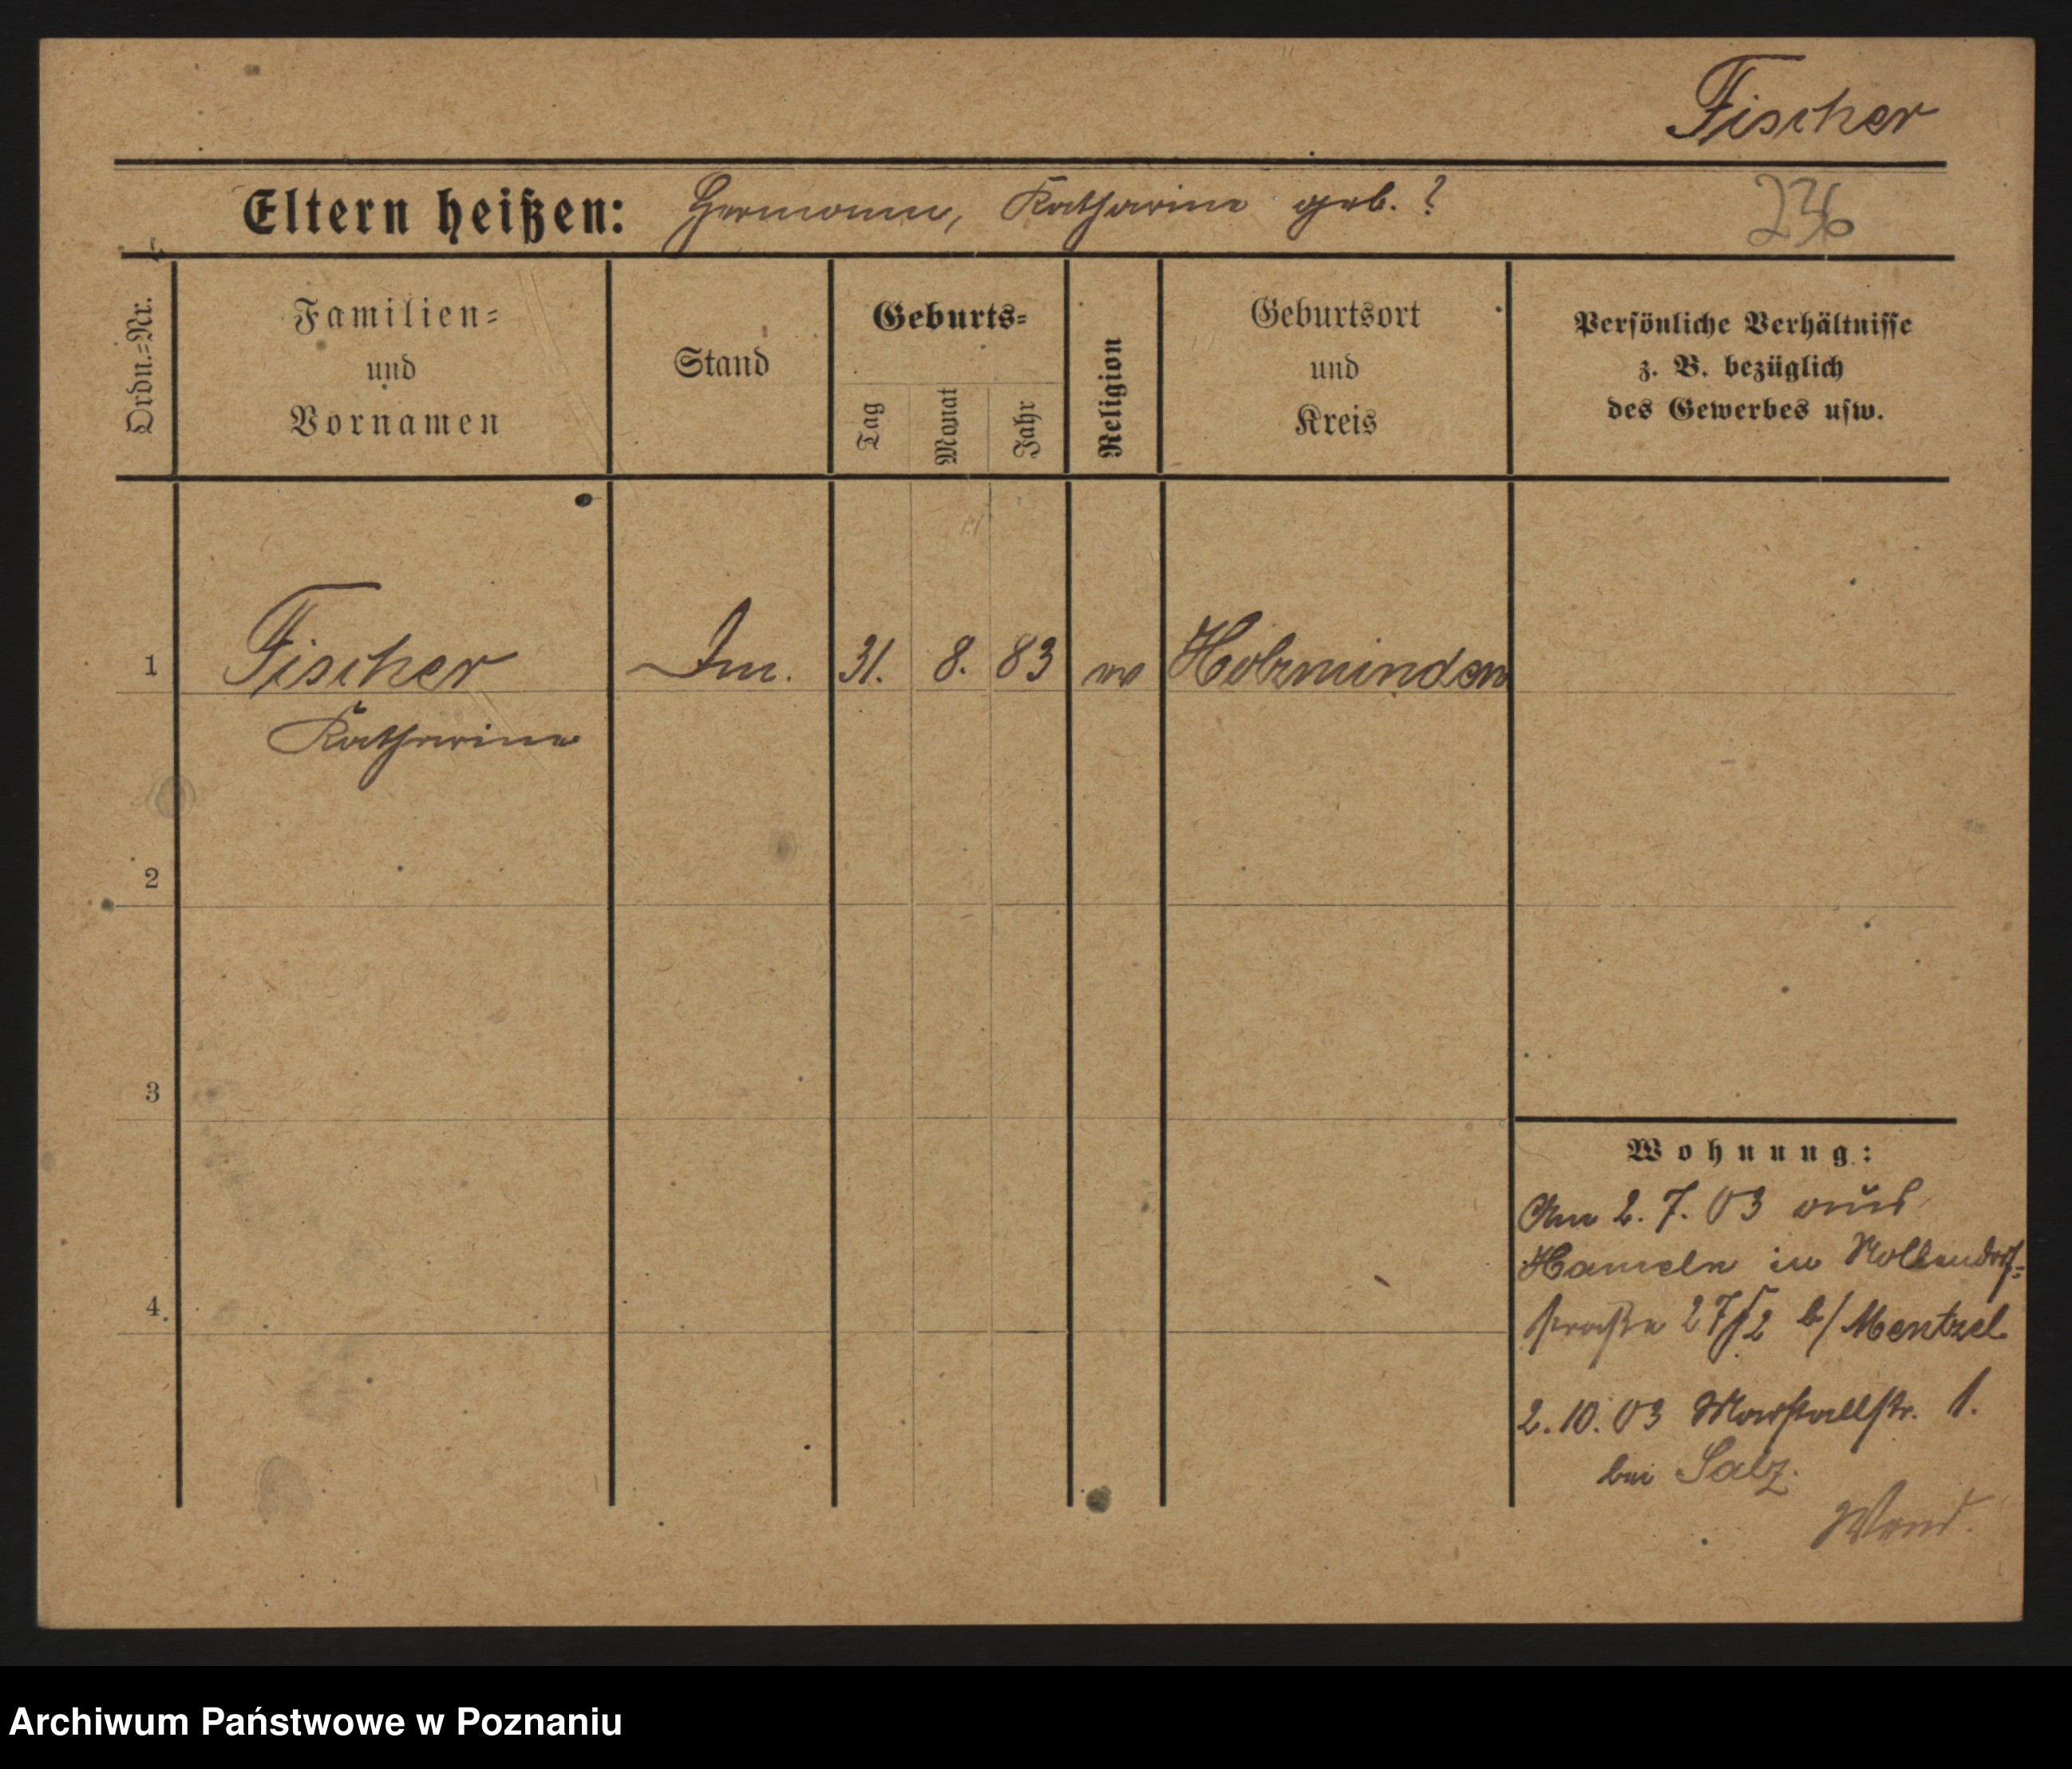 Fischer
Eltern heißen: Hermann, Katharina geb. ?
236
Ordn.=Nr.
Familien=
und
Vornamen
Stand
Geburts=
Tag
Monat
Jahr
Religion
Geburtsort
und
Kreis
Persönliche Verhältnisse
z. B. bezüglich
des Gewerbes usw.
1 Fischer 31. 8. 83 Holzminden
Katharina
2
3
4
Wohnung:
Am 2. 7. 03 aus
Hameln in Nollendorf=
straße 27/2 b/ Mentzel
2. 10. 03 Marstallstr. 1.
bei Salz.
Archiwum Państwowe w Poznaniu